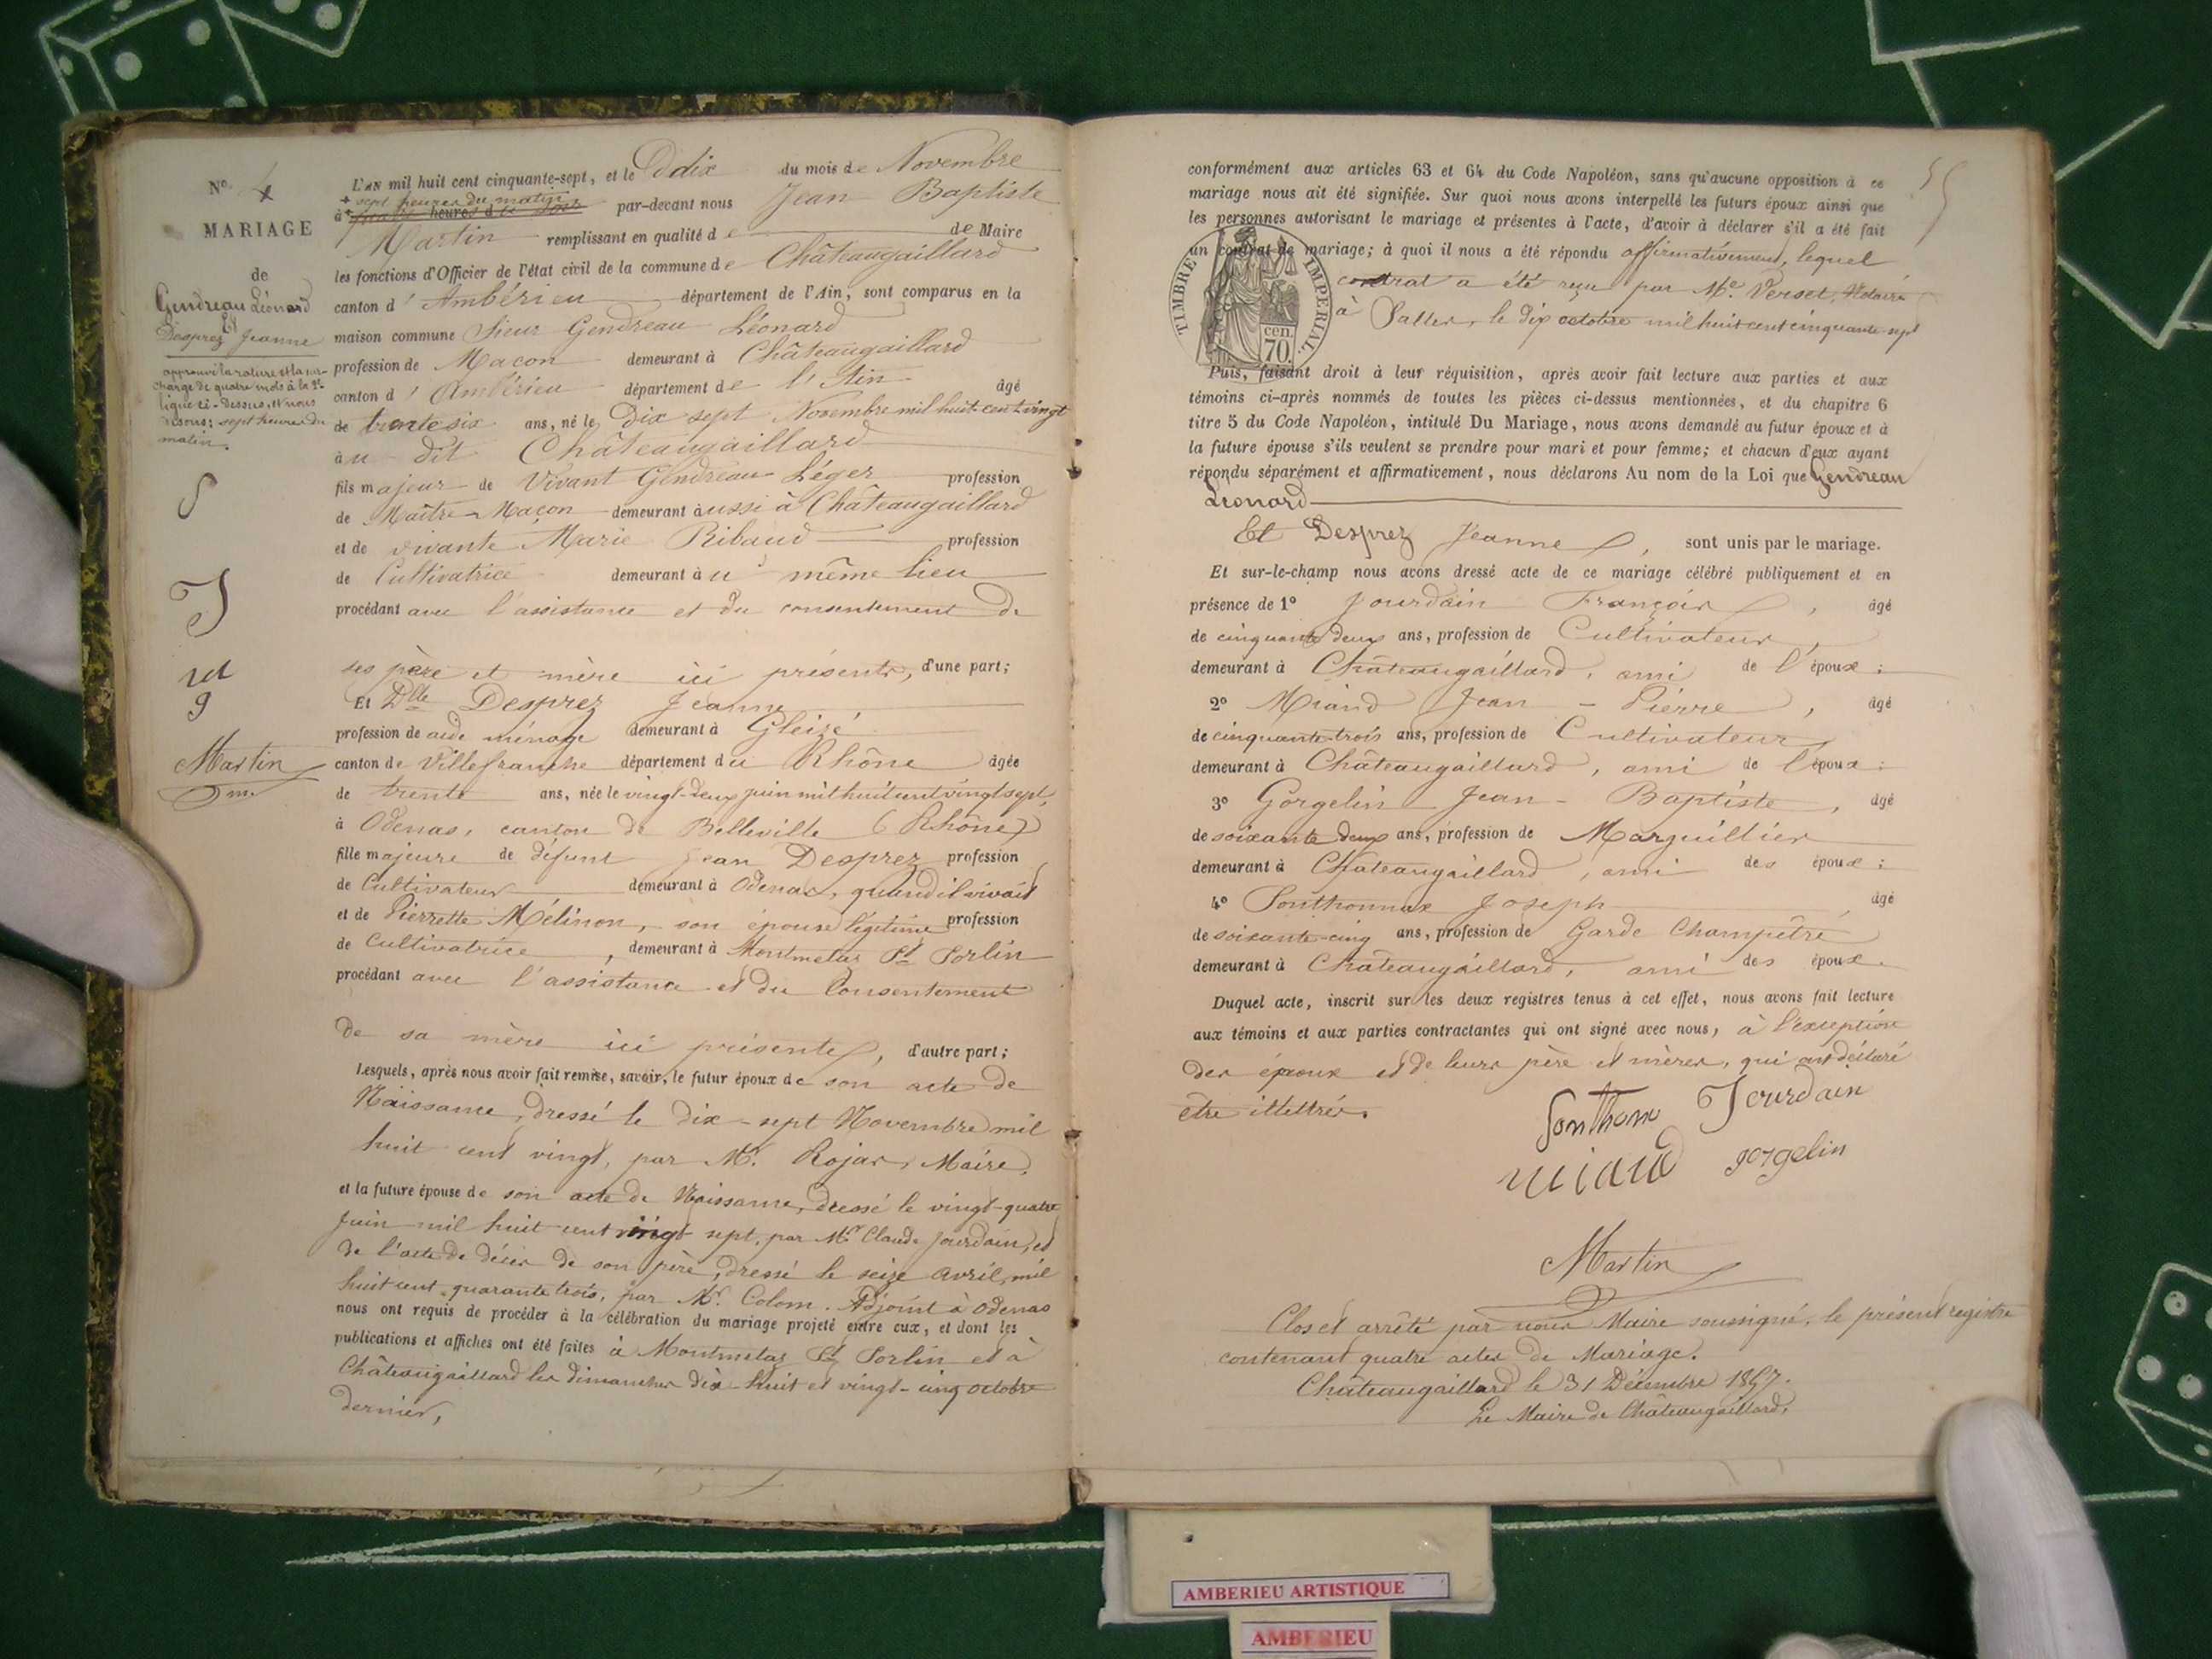 N° 4
MARIAGE
de
Gendreau Léonard
Et
Desprez Jeanne
approuvé la rature et la sur-
charge de quatre mots à la 2e
ligne ci-dessus, et nous
disons: sept heures du
matin.
S
J
M
g
Martin
L'AN mil huit cent cinquante-sept, et le dix du mois de Novembre
+ sept heures du matin
à heures d par-devant nous Jean Baptiste
Martin remplissant en qualité de de Maire
les fonctions d'Officier de l'état civil de la commune de Châteaugaillard
canton d'Ambérieu département de l'Ain, sont comparus en la
maison commune Sieur Gendreau Léonard
profession de Maçon demeurant à Châteaugaillard
canton d'Ambérieu département de l'Ain âgé
de trente six ans, né le Dix sept Novembre mil huit cent vingt
au dit Châteaugaillard
fils majeur de Vivant Gendreau Léger profession
de Maître Maçon demeurant aussi à Châteaugaillard
et de vivante Marie Ribaud profession
de Cultivatrice demeurant au même lieu
procédant avec l'assistance et du consentement de
ses père et mère ici présents, d'une part;
Et Dlle Desprez Jeanne
profession de aide ménage demeurant à Gleizé
canton de Villefranche département du Rhône âgée
de trente ans, née le vingt-deux juin mil huit cent vingt sept,
à Odenas, canton de Belleville (Rhône)
fille majeure de défunt Jean Desprez profession
de Cultivateur demeurant à Odenas, quand il vivait
et de Pierrette Mélinon, son épouse légitime profession
de Cultivatrice, demeurant à Montmelas St Sorlin
procédant avec l'assistance et du Consentement
de sa mère ici présente, d'autre part;
Lesquels, après nous avoir fait remise, savoir, le futur époux de son acte de
Naissance, dressé le dix-sept Novembre mil
huit cent vingt, par Mr. Rojar, Maire,
et la future épouse de son acte de Naissance, dressé le vingt-quatre
Juin mil huit cent vingt sept, par Mr Claude Jourdain, et
de l'acte de décès de son père, dressé le seize avril, mil
huit cent quarante trois, par Mr. Colom. Adjoint à Odenas
nous ont requis de procéder à la célébration du mariage projeté entre eux, et dont les
publications et affiches ont été faites à Montmelas St Sorlin et à
Châteaugaillard les dimanches dix-huit et vingt-cinq octobre
dernier,
55
conformément aux articles 63 et 64 du Code Napoléon, sans qu'aucune opposition à ce
mariage nous ait été signifiée. Sur quoi nous avons interpellé les futurs époux ainsi que
les personnes autorisant le mariage et présentes à l'acte, d'avoir à déclarer s'il a été fait
un contrat de mariage; à quoi il nous a été répondu affirmativement, lequel
contrat a été reçu par Me. Verset, Notaire
à Salles, le dix octobre mil huit cent cinquante sept
TIMBRE IMPERIAL.
cen.
70.
Puis, faisant droit à leur réquisition, après avoir fait lecture aux parties et aux
témoins ci-après nommés de toutes les pièces ci-dessus mentionnées, et du chapitre 6
titre 5 du Code Napoléon, intitulé Du Mariage, nous avons demandé au futur époux et à
la future épouse s'ils veulent se prendre pour mari et pour femme; et chacun d'eux ayant
répondu séparément et affirmativement, nous déclarons Au nom de la Loi que Gendreau
Léonard
Et Desprez Jeanne, sont unis par le mariage.
Et sur-le-champ nous avons dressé acte de ce mariage célébré publiquement et en
présence de 1° Jourdain François, âgé
de cinquante deux ans, profession de Cultivateur,
demeurant à Châteaugaillard, ami de l'époux;
2° Miand Jean-Pierre, âgé
de cinquante-trois ans, profession de Cultivateur,
demeurant à Châteaugaillard, ami de l'époux;
3° Gorgelin Jean-Baptiste, âgé
de soixante deux ans, profession de Marguillier
demeurant à Châteaugaillard, ami des époux;
4° Sonthonnax Joseph âgé
de soixante-cinq ans, profession de Garde Champêtre
demeurant à Châteaugaillard, ami des époux.
Duquel acte, inscrit sur les deux registres tenus à cet effet, nous avons fait lecture
aux témoins et aux parties contractantes qui ont signé avec nous, à l'exception
des époux et de leurs père et mères, qui ont déclaré
être illettrés.
Sonthonx Jourdain
miand gorgelin
Martin
Clos et arrêté par nous Maire soussigné, le présent registre
contenant quatre actes de Mariage.
Châteaugaillard le 31 Décembre 1857.
Le Maire de Châteaugaillard,
AMBERIEU ARTISTIQUE
AMBERIEU